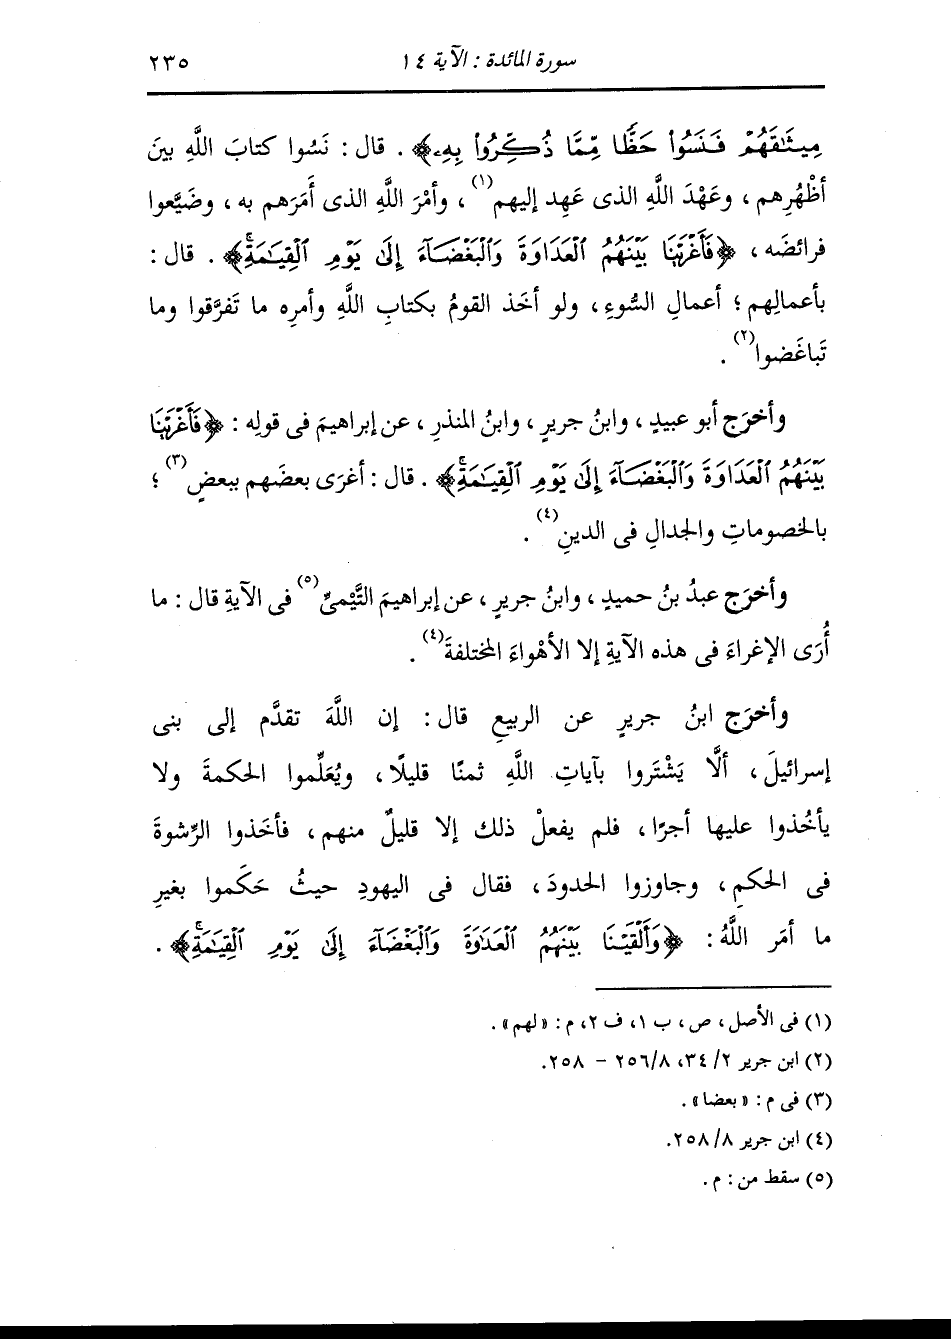 سورة المائدة : الآية ١٤ ٢٣٥
مِيثَـٰقَهُمْ فَنَسُوا۟ حَظًّا مِّمَّا ذُكِّرُوا۟ بِهِۦ﴾ . قال : نَسُوا كتابَ اللَّهِ بينَ
أظْهُرِهم ، وعَهْدَ اللَّهِ الذى عَهِد إليهم(١) ، وأمْرَ اللَّهِ الذى أَمَرَهم به ، وضَيَّعوا
فرائضَه ، ﴿فَأَغْرَيْنَا بَيْنَهُمُ ٱلْعَدَاوَةَ وَٱلْبَغْضَآءَ إِلَىٰ يَوْمِ ٱلْقِيَـٰمَةِۚ﴾ . قال :
بأعمالِهم ؛ أعمالِ السُّوءِ ، ولو أخَذ القومُ بكتابِ اللَّهِ وأمرِه ما تَفرَّقوا وما
تَباغَضوا(٢) .
وأخرَج أبو عبيدٍ ، وابنُ جريرٍ ، وابنُ المنذرِ ، عن إبراهيمَ فى قولِه : ﴿فَأَغْرَيْنَا
بَيْنَهُمُ ٱلْعَدَاوَةَ وَٱلْبَغْضَآءَ إِلَىٰ يَوْمِ ٱلْقِيَـٰمَةِۚ﴾ . قال : أغرَى بعضَهم ببعضٍ(٣) ؛
بالخصوماتِ والجدالِ فى الدينِ(٤) .
وأخرَج عبدُ بنُ حميدٍ ، وابنُ جريرٍ ، عن إبراهيمَ التَّيْمىِّ(٥) فى الآيةِ قال : ما
أُرَى الإغراءَ فى هذه الآيةِ إلا الأهْواءَ المختلفةَ(٤) .
وأخرَج ابنُ جريرٍ عن الربيعِ قال : إن اللَّهَ تقدَّم إلى بنى
إسرائيلَ ، ألَّا يَشْتَروا بآياتِ اللَّهِ ثمنًا قليلًا ، ويُعَلِّموا الحكمةَ ولا
يأخُذوا عليها أجرًا ، فلم يفعلْ ذلك إلا قليلٌ منهم ، فأخَذوا الرِّشوةَ
فى الحكمِ ، وجاوزوا الحدودَ ، فقال فى اليهودِ حيثُ حَكَموا بغيرِ
ما أمَر اللَّهُ : ﴿وَأَلْقَيْنَا بَيْنَهُمُ ٱلْعَدَاوَةَ وَٱلْبَغْضَآءَ إِلَىٰ يَوْمِ ٱلْقِيَـٰمَةِۚ﴾ .
(١) فى الأصل ، ص ، ب ١ ، ف ٢ ، م : «لهم» .
(٢) ابن جرير ٢/ ٣٤، ٢٥٦/٨ - ٢٥٨.
(٣) فى م : «بعضا» .
(٤) ابن جرير ٢٥٨/٨.
(٥) سقط من : م .